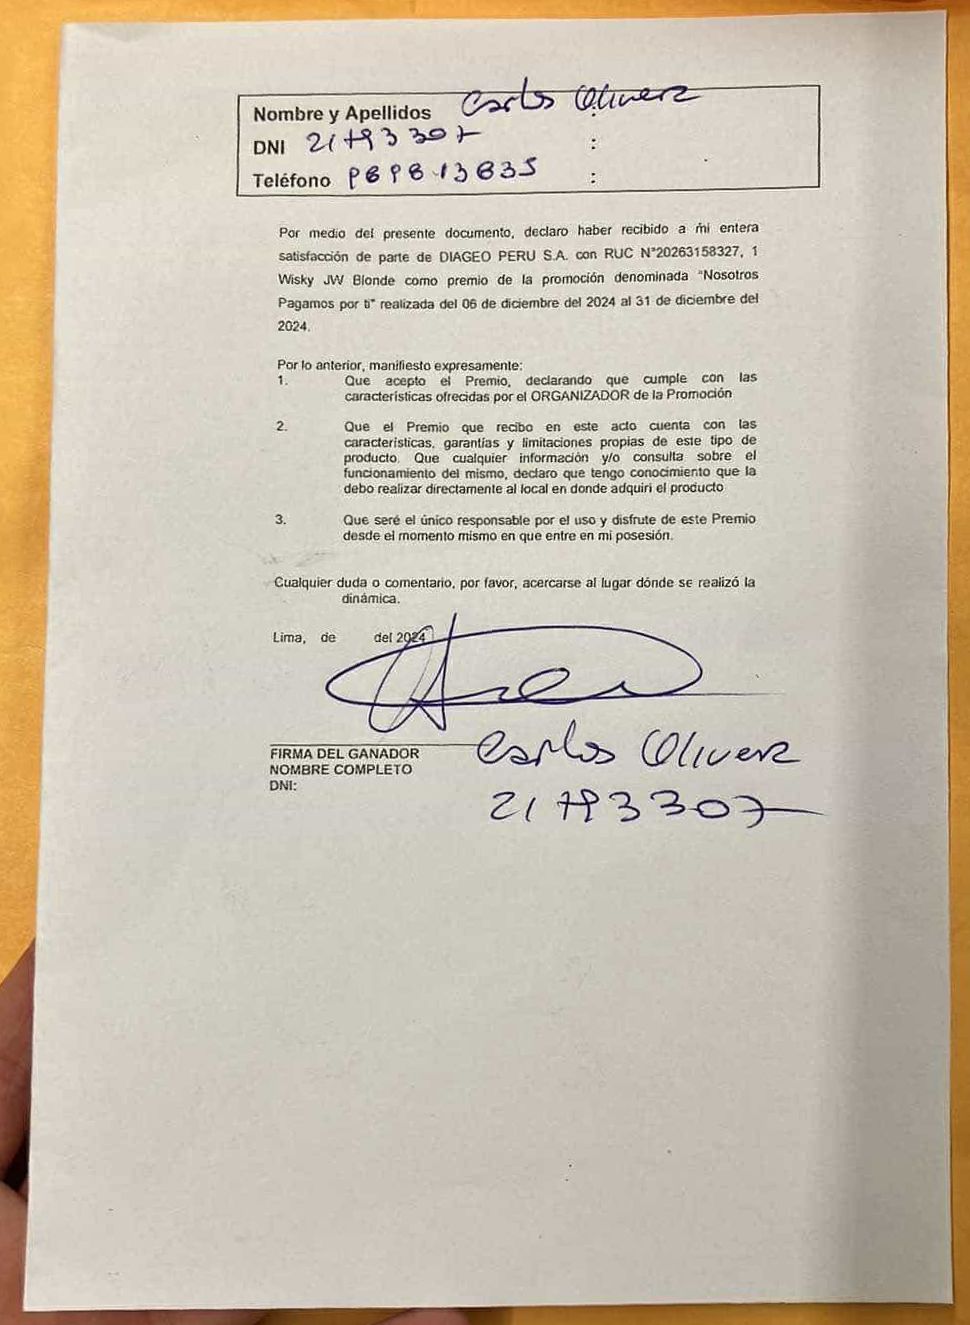 Nombre y Apellidos Carlos Olivera
DNI 21793307 :
Teléfono :
Por medio del presente documento, declaro haber recibido a mi entera
satisfacción de parte de DIAGEO PERU S.A. con RUC N°20263158327, 1
Wisky JW Blonde como premio de la promoción denominada "Nosotros
Pagamos por ti" realizada del 06 de diciembre del 2024 al 31 de diciembre del
2024.
Por lo anterior, manifiesto expresamente:
1. Que acepto el Premio, declarando que cumple con las
características ofrecidas por el ORGANIZADOR de la Promoción
2. Que el Premio que recibo en este acto cuenta con las
características, garantías y limitaciones propias de este tipo de
producto. Que cualquier información y/o consulta sobre el
funcionamiento del mismo, declaro que tengo conocimiento que la
debo realizar directamente al local en donde adquirí el producto
3. Que seré el único responsable por el uso y disfrute de este Premio
desde el momento mismo en que entre en mi posesión.
Cualquier duda o comentario, por favor, acercarse al lugar dónde se realizó la
dinámica.
Lima, de del 2024
FIRMA DEL GANADOR Carlos Olivera
NOMBRE COMPLETO
DNI: 21793307